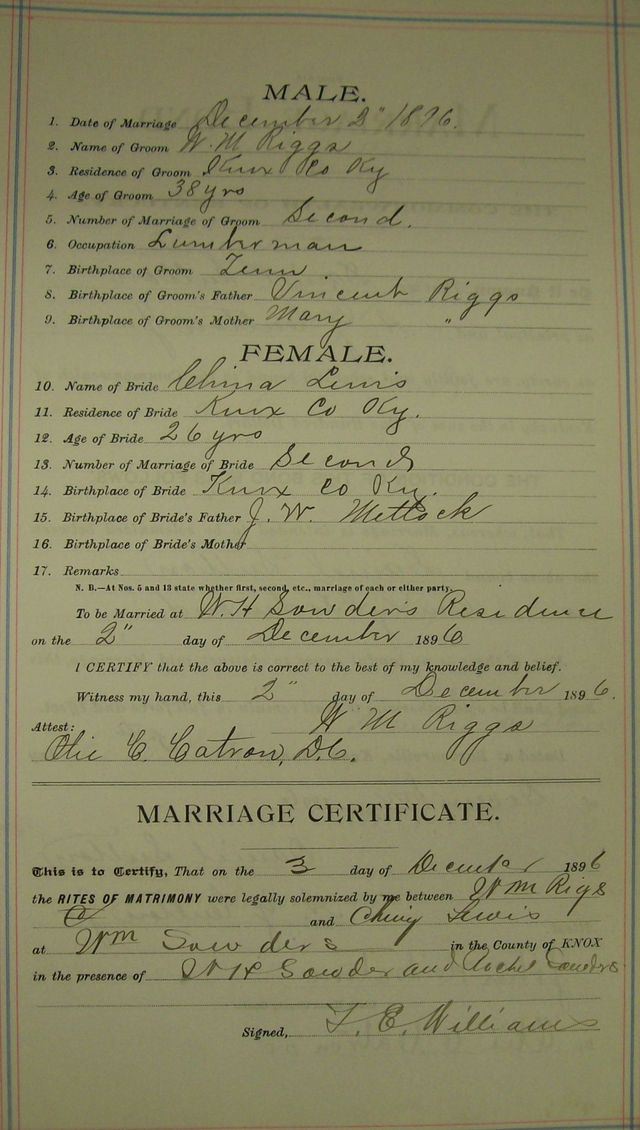 MALE.
1. Date of Marriage December 2" 1896.
2. Name of Groom W. M Riggs
3. Residence of Groom Knox Co Ky
4. Age of Groom 38 yrs
5. Number of Marriage of Groom Second.
6. Occupation Lumberman
7. Birthplace of Groom Tenn.
8. Birthplace of Groom's Father Vincent Riggs
9. Birthplace of Groom's Mother Mary "
FEMALE.
10. Name of Bride China Lewis
11. Residence of Bride Knox Co Ky.
12. Age of Bride 26 yrs
13. Number of Marriage of Bride Second
14. Birthplace of Bride Knox Co Ky.
15. Birthplace of Bride's Father J. W.
16. Birthplace of Bride's Mother
17. Remarks
N. B.—At Nos. 5 and 13 state whether first, second, etc., marriage of each or either party.
To be Married at W. H Sowder's Residence
on the 2" day of December 1896
I CERTIFY that the above is correct to the best of my knowledge and belief.
Witness my hand, this 2" day of December 1896.
W M Riggs
Attest:
Olie C. Catron, D.C.
MARRIAGE CERTIFICATE.
This is to Certify, That on the 3 day of December 1896
the RITES OF MATRIMONY were legally solemnized by me between Wm Rigs
and Lewis
at Wm Sowders in the County of KNOX
in the presence of W H Sowder and Sowders
Signed, T. E. Williams